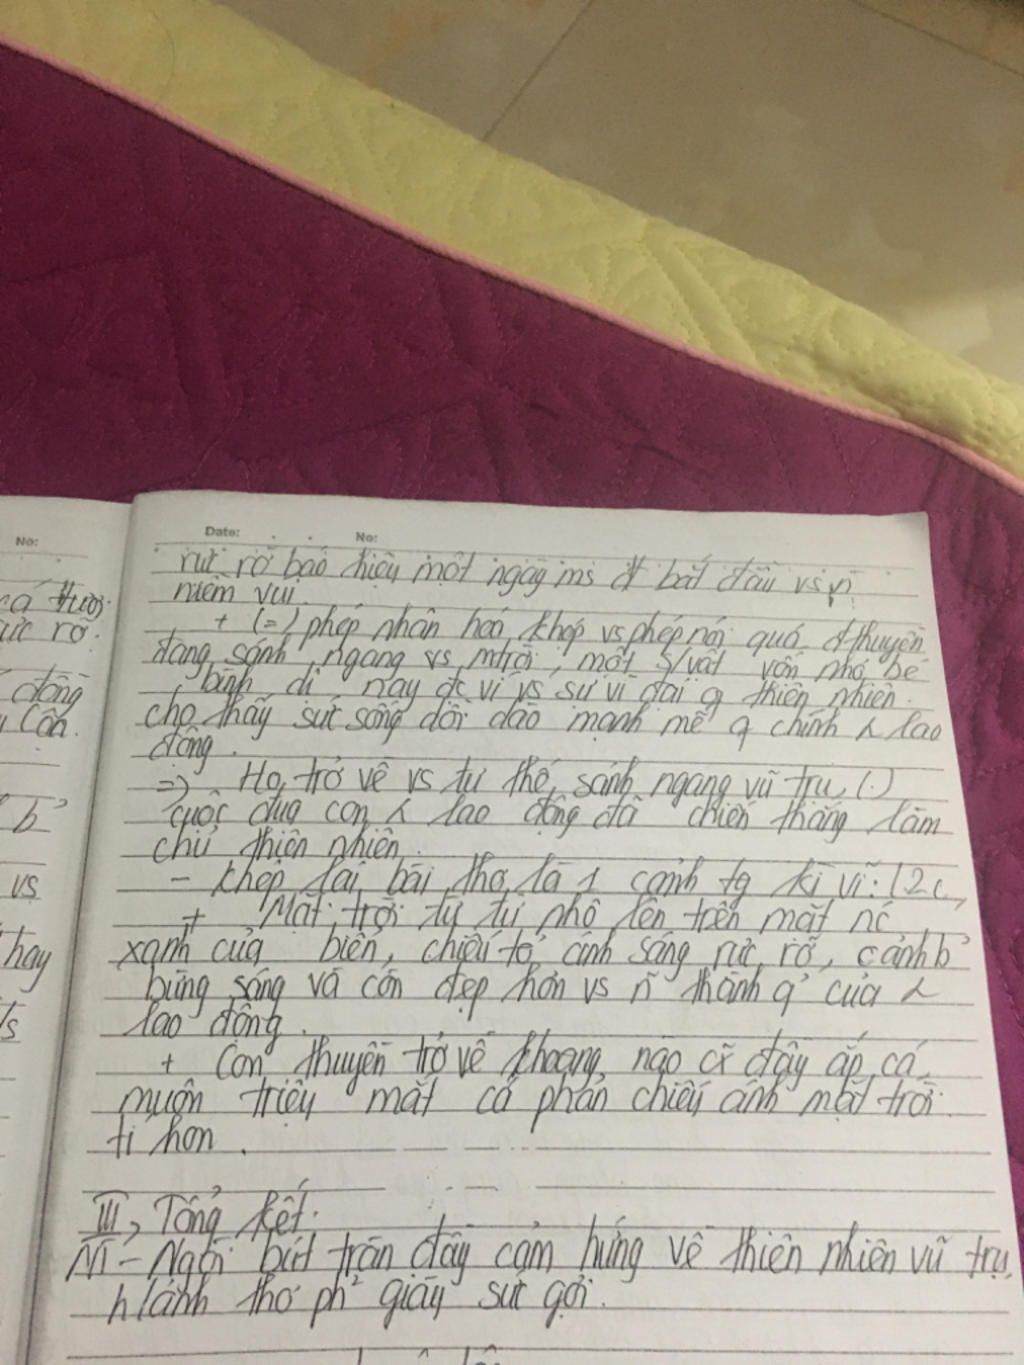 No:
cá tươi
rực rỡ.
động
Côn.
b'
vs
hay
Date: . . No:
rực rỡ báo hiệu một ngày ms bắt đầu vs
niềm vui.
+ (=) phép nhân hoá, khép vs phép nói quá, thuyền
đang sánh ngang vs mtrời, một s/vật vốn nhỏ bé
bình dị nay đc ví vs sự vĩ đại q thiên nhiên.
cho thấy sức sống dồi dào mạnh mẽ q chính lao
động.
=> Họ trở về vs tư thế sánh ngang vũ trụ, (.)
cuộc đua con lao động đã chiến thắng làm
chủ thiên nhiên.
- Khép lại bài thơ là 1 cảnh tg kì vĩ:
+ Mặt trời từ từ nhô lên trên mặt nc
xanh của biển, chiếu toả ánh sáng rực rỡ, cảnh b'
bừng sáng và còn đẹp hơn vs n~ thành q' của
lao động.
+ Con thuyền trở về khoang nào cx đầy ắp cá
muôn triệu mắt cá phản chiếu ánh mặt trời
ti hon.
III, Tổng kết.
- Ngòi bút tràn đầy cảm hứng về thiên nhiên vũ trụ,
h/ảnh thơ ph² giàu sức gợi.